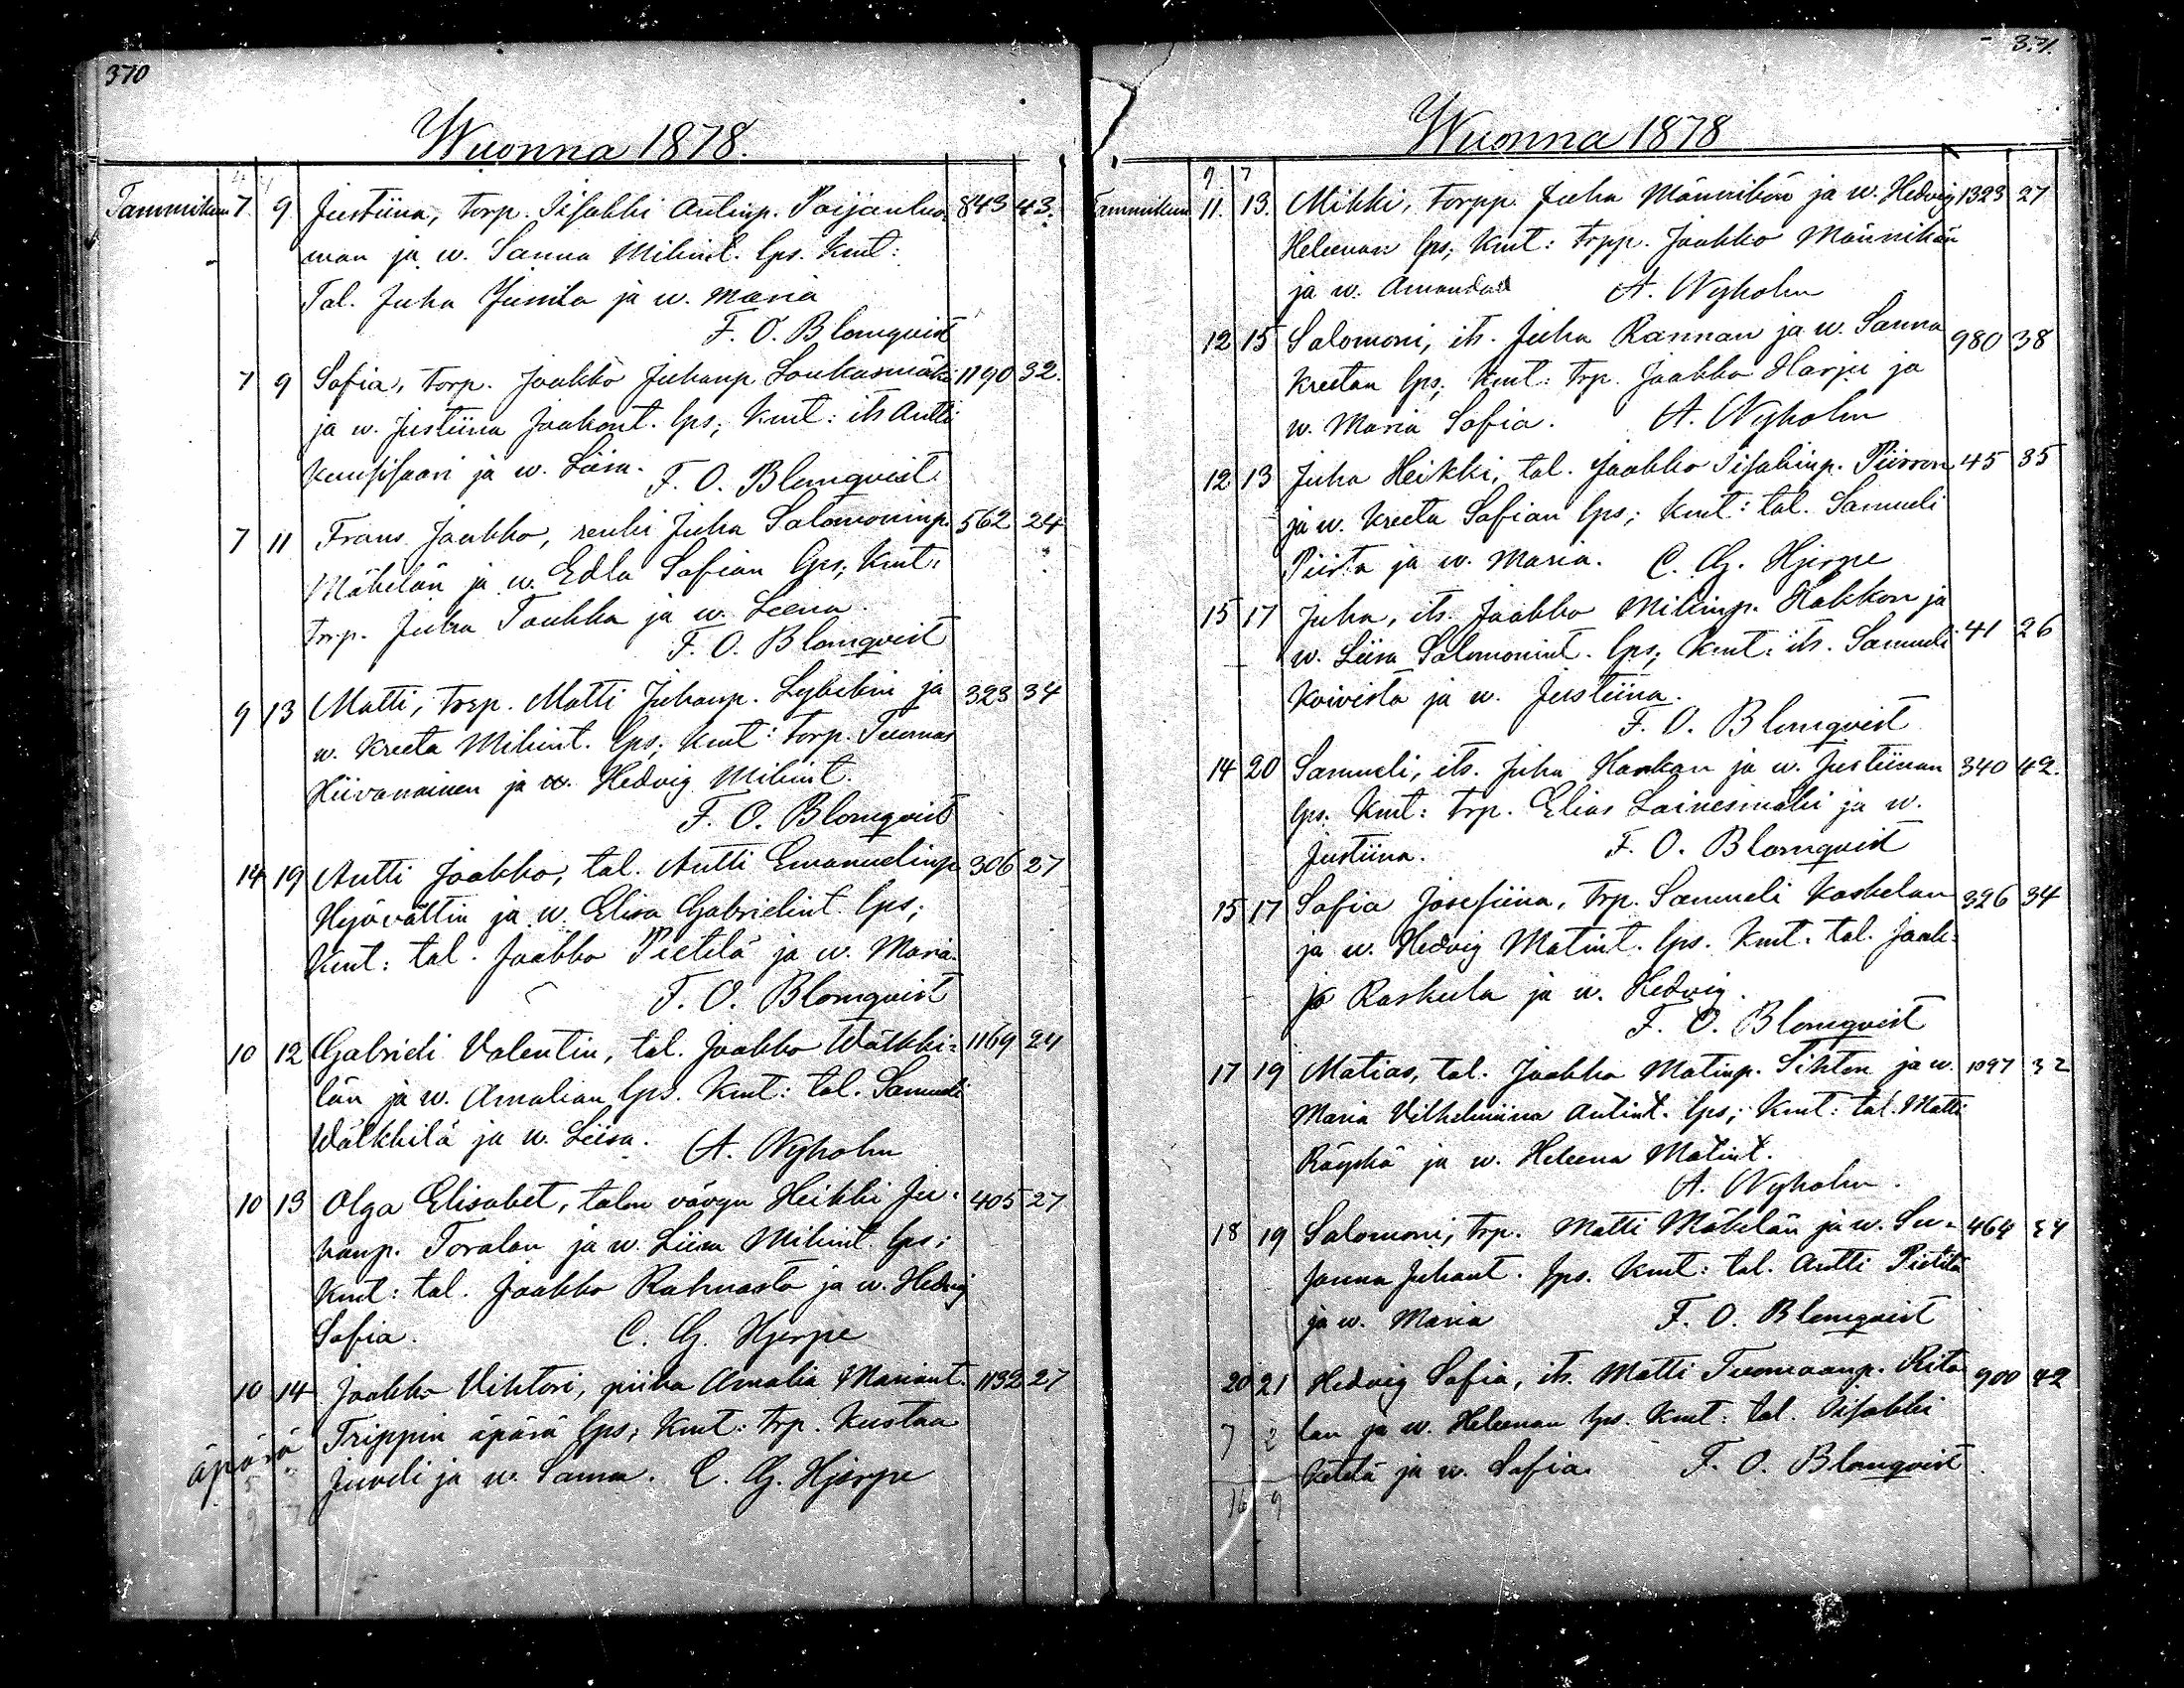 370
Wuonna 1878.
Tammikuu 7 9 Justiina, torp. Iisakki Antinp. Paijanluo- 843 43.
man ja w. Sanna Mikint. lps. Kmt:
Tal. Juha Junila ja w. Maria
F. O. Blomqvist
7 9 Sofia, torp. Jaakko Juhanp. Laukasmäki 1190 32.
ja w. Justiina Jaakont. lps; Kmt: its Antti
Kuusisaari ja w. Liisa. F. O. Blomqvist
7 11 Frans Jaakko, renki Juha Salomoninp. 562 24
Mäkelän ja w. Edla Sofian lps; Kmt:
trp. Juha Taukka ja w. Leena.
F. O. Blomqvist
9 13 Matti, trp. Matti Juhanp. Lybekin ja 323 34
w. Kreeta Mikint. lps; Kmt: torp. Tuomas
Hiivanainen ja w. Hedvig Mikint.
F. O. Blomqvist
14 19 Antti Jaakko, tal. Antti Emanuelinp. 306 27
Hyövältin ja w. Elisa Gabrielint. lps;
Kmt: tal. Jaakko Pietilä ja w. Maria.
F. O. Blomqvist
10 12 Gabrieli Valentin, tal. Jaakko Wälkki- 1169 24
län ja w. Amalian lps. Kmt: tal. Samueli
Wälkkilä ja w. Liisa. A. Nyholm
10 13 Olga Elisabet, talon vävyn Heikki Ju- 405 27
hanp. Toralan ja w. Liisa Mikint. lps;
Kmt: tal. Jaakko Rahnasto ja w. Hedvig
Sofia. C. G. Hjerpe
10 14 Jaakko Vihtori, piika Amalia Mariant. 1132 27
äpärä Trippin äpärä lps; Kmt: trp. Kustaa
Juveli ja w. Sanna. C. G. Hjerpe
371.
Wuonna 1878
9. 7
Tammikuu 11. 13. Mikki, torpp. Juha Männikön ja w. Hedvig 1323 27
Heleenan lps; Kmt: trpp. Jaakko Männikön
ja w. Amanda A. Nyholm
12 15 Salomoni, its. Juha Rannan ja w. Sanna 980 38
Kreetan lps; Kmt: trp. Jaakko Harju ja
w. Maria Sofia. A. Nyholm
12 13 Juha Heikki, tal. Jaakko Iisakinp. Piirron 45 35
ja w. Kreeta Sofian lps; Kmt: tal. Samueli
Piirto ja w. Maria. C. G. Hjerpe
15 17 Juha, its. Jaakko Mikinp. Hakkon ja
w. Liisa Salomonint. lps; Kmt: its. Samueli 41 26
Koivisto ja w. Justiina.
F. O. Blomqvist
14 20 Samueli, its. Juha Kankan ja w. Justiinan 340 42.
lps. Kmt: trp. Elias Lainesmäki ja w.
Justiina. F. O. Blomqvist
15 17 Sofia Josefiina, trp. Samueli Koskelan 326 34
ja w. Hedvig Matint. lps. Kmt: tal. Jaak-
ko Raskula ja w. Hedvig.
F. O. Blomqvist
17 19 Matias, tal. Jaakko Matinp. Sihton ja w. 1097 32
Maria Vilhelmiina Antint. lps; Kmt: tal. Matti
Räyskä ja w. Heleena Matint.
A. Nyholm.
18 19 Salomoni, trp. Matti Mäkelän ja w. Su- 464 34
sanna Juhant. lps. Kmt: tal. Antti Pietilä
ja w. Maria F. O. Blomqvist
20 21 Hedvig Sofia, its. Matti Tuomaanp. Rita- 900 42
7 2 lan ja w. Heleenan lps. Kmt: tal. Iisakki
Ketelä ja w. Sofia. F. O. Blomqvist
16 9